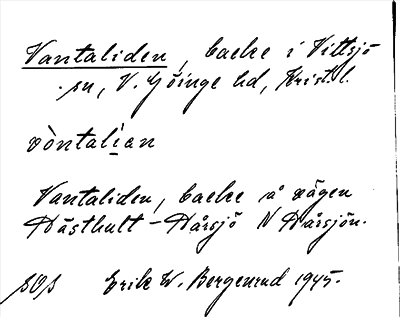 Vantaliden, backe i Vittsjö
sn, V. Göinge hd, Krist. l.
vòntalían
Vantaliden, backe å vägen
Hästhult - Hårsjö N Hårsjön.
SOS Erik W. Bergenrud 1945.